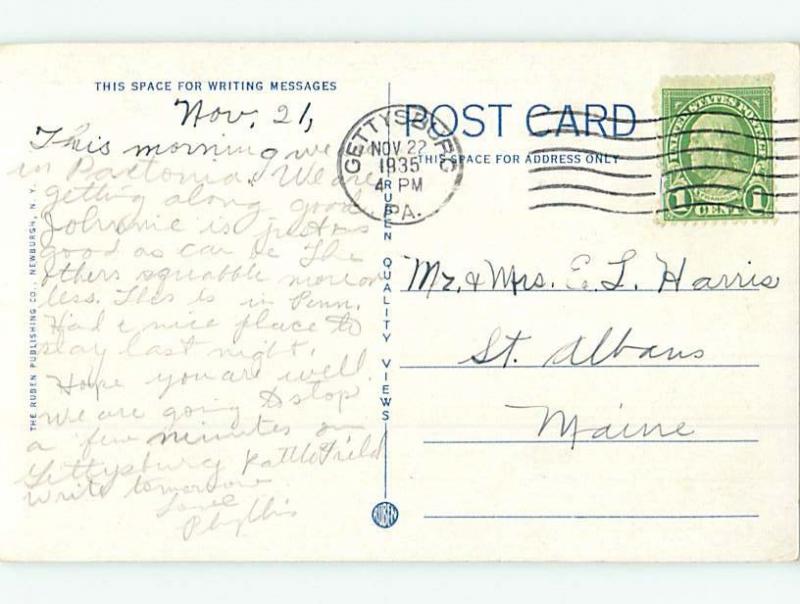 THIS SPACE FOR WRITING MESSAGES
Nov. 21,
This morning we
in We are
getting along good
Johnnie is just as
good as can be The
others squabble more or
less. This is in Penn.
Had a nice place to
stay last night.
Hope you are well.
We are going to stop
a few minutes on
Gettysburg Battlefield
Write tomorrow
Love
Phyllis
THE RUBEN PUBLISHING CO., NEWBURGH, N. Y.
RUBEN QUALITY VIEWS
RUBEN
GETTYSBURG
NOV 22
1935
4 PM
PA.
POST CARD
THIS SPACE FOR ADDRESS ONLY
UNITED STATES POSTAGE
1 CENT 1
Mr. & Mrs. E. L. Harris
St. Albans
Maine